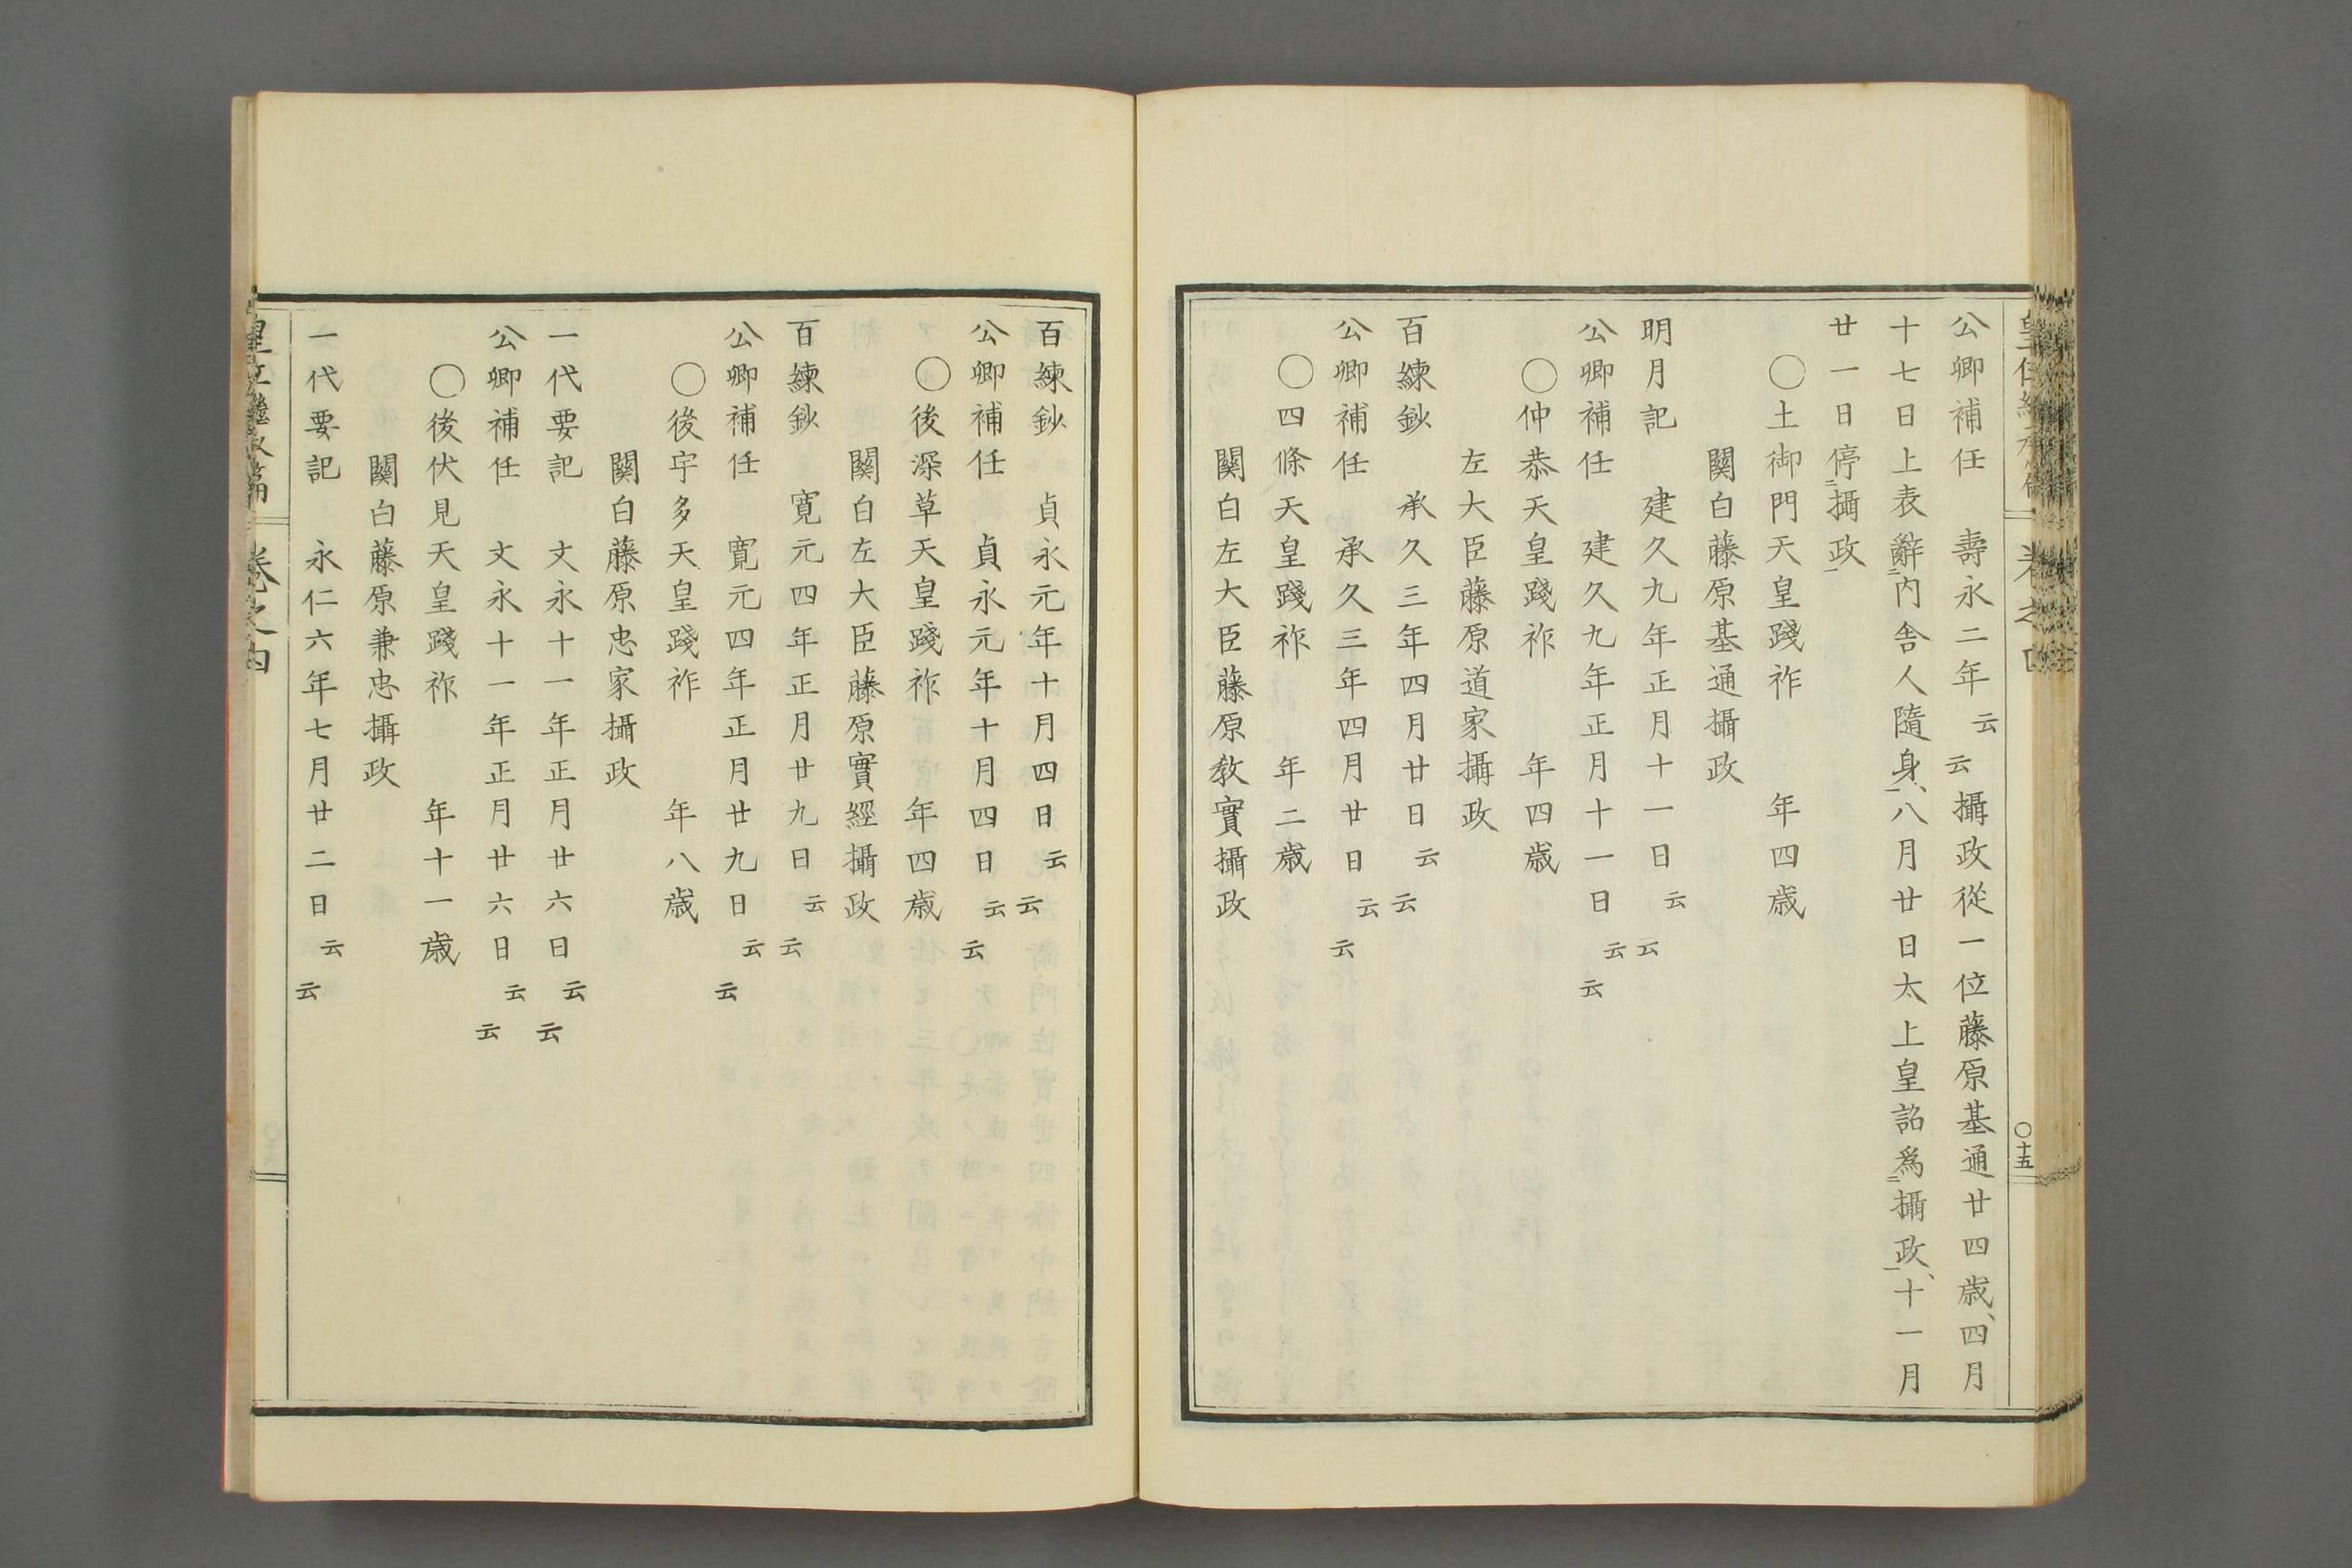 公卿補任　壽永二年云云攝政從一位藤原基通廿四歳、四月
十七日上表辭二内舎人隨身一、八月廿日太上皇詔爲二攝政一、十一月
廿一日停二攝政一
〇土御門天皇踐祚　年四歳
關白藤原基通攝政
明月記　建久九年正月十一日云云
公卿補任　建久九年正月十一日云云
〇仲恭天皇踐祚　年四歳
左大臣藤原道家攝政
百練鈔　承久三年四月廿日云云
公卿補任　承久三年四月廿日云云
〇四條天皇踐祚　年二歳
關白左大臣藤原敎實攝政
〇十五
百練鈔　貞永元年十月四日云云
公卿補任　貞永元年十月四日云云
〇後深草天皇踐祚　年四歳
關白左大臣藤原實經攝政
百練鈔　寛元四年正月廿九日云云
公卿補任　寛元四年正月廿九日云云
〇後宇多天皇踐祚　年八歳
關白藤原忠家攝政
一代要記　文永十一年正月廿六日云云
公卿補任　文永十一年正月廿六日云云
〇後伏見天皇踐祚　年十一歳
關白藤原兼忠攝政
一代要記　永仁六年七月廿二日云云